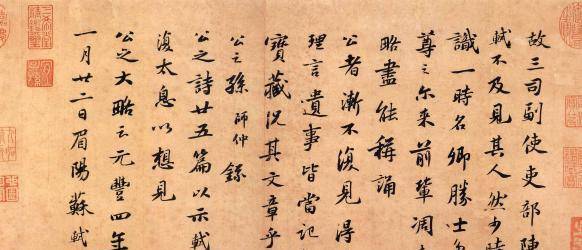 故三司副使吏部陳
軾不及見其人然少時
識一時名卿勝士多
尊之尔来前輩凋
略盡能稱誦
公者漸不復見得
理言遺事皆當記
寶藏況其文章乎
公之孫師仲錄
公之詩廿五篇以示軾
復太息以想見
公之大略云元豐四年
一月廿二日眉陽蘇軾